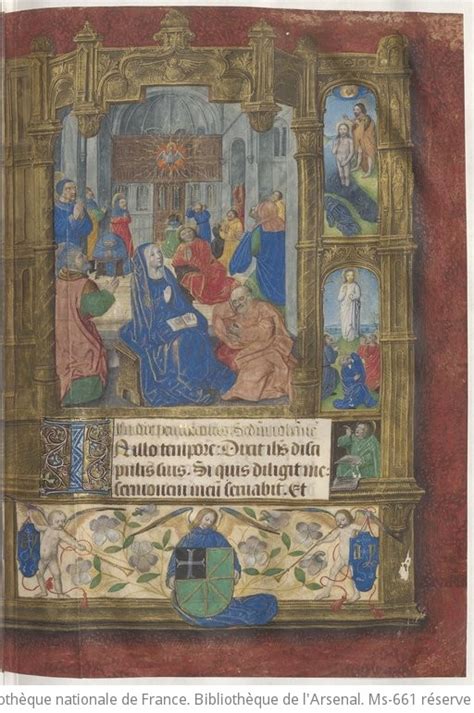 In die
N illo tempore: Dixit ihs disci
pulis suis. Si quis diligit me:
sermonem meū servabit. Et
nationale de France. Bibliothèque de l'Arsenal. Ms-661 réserve